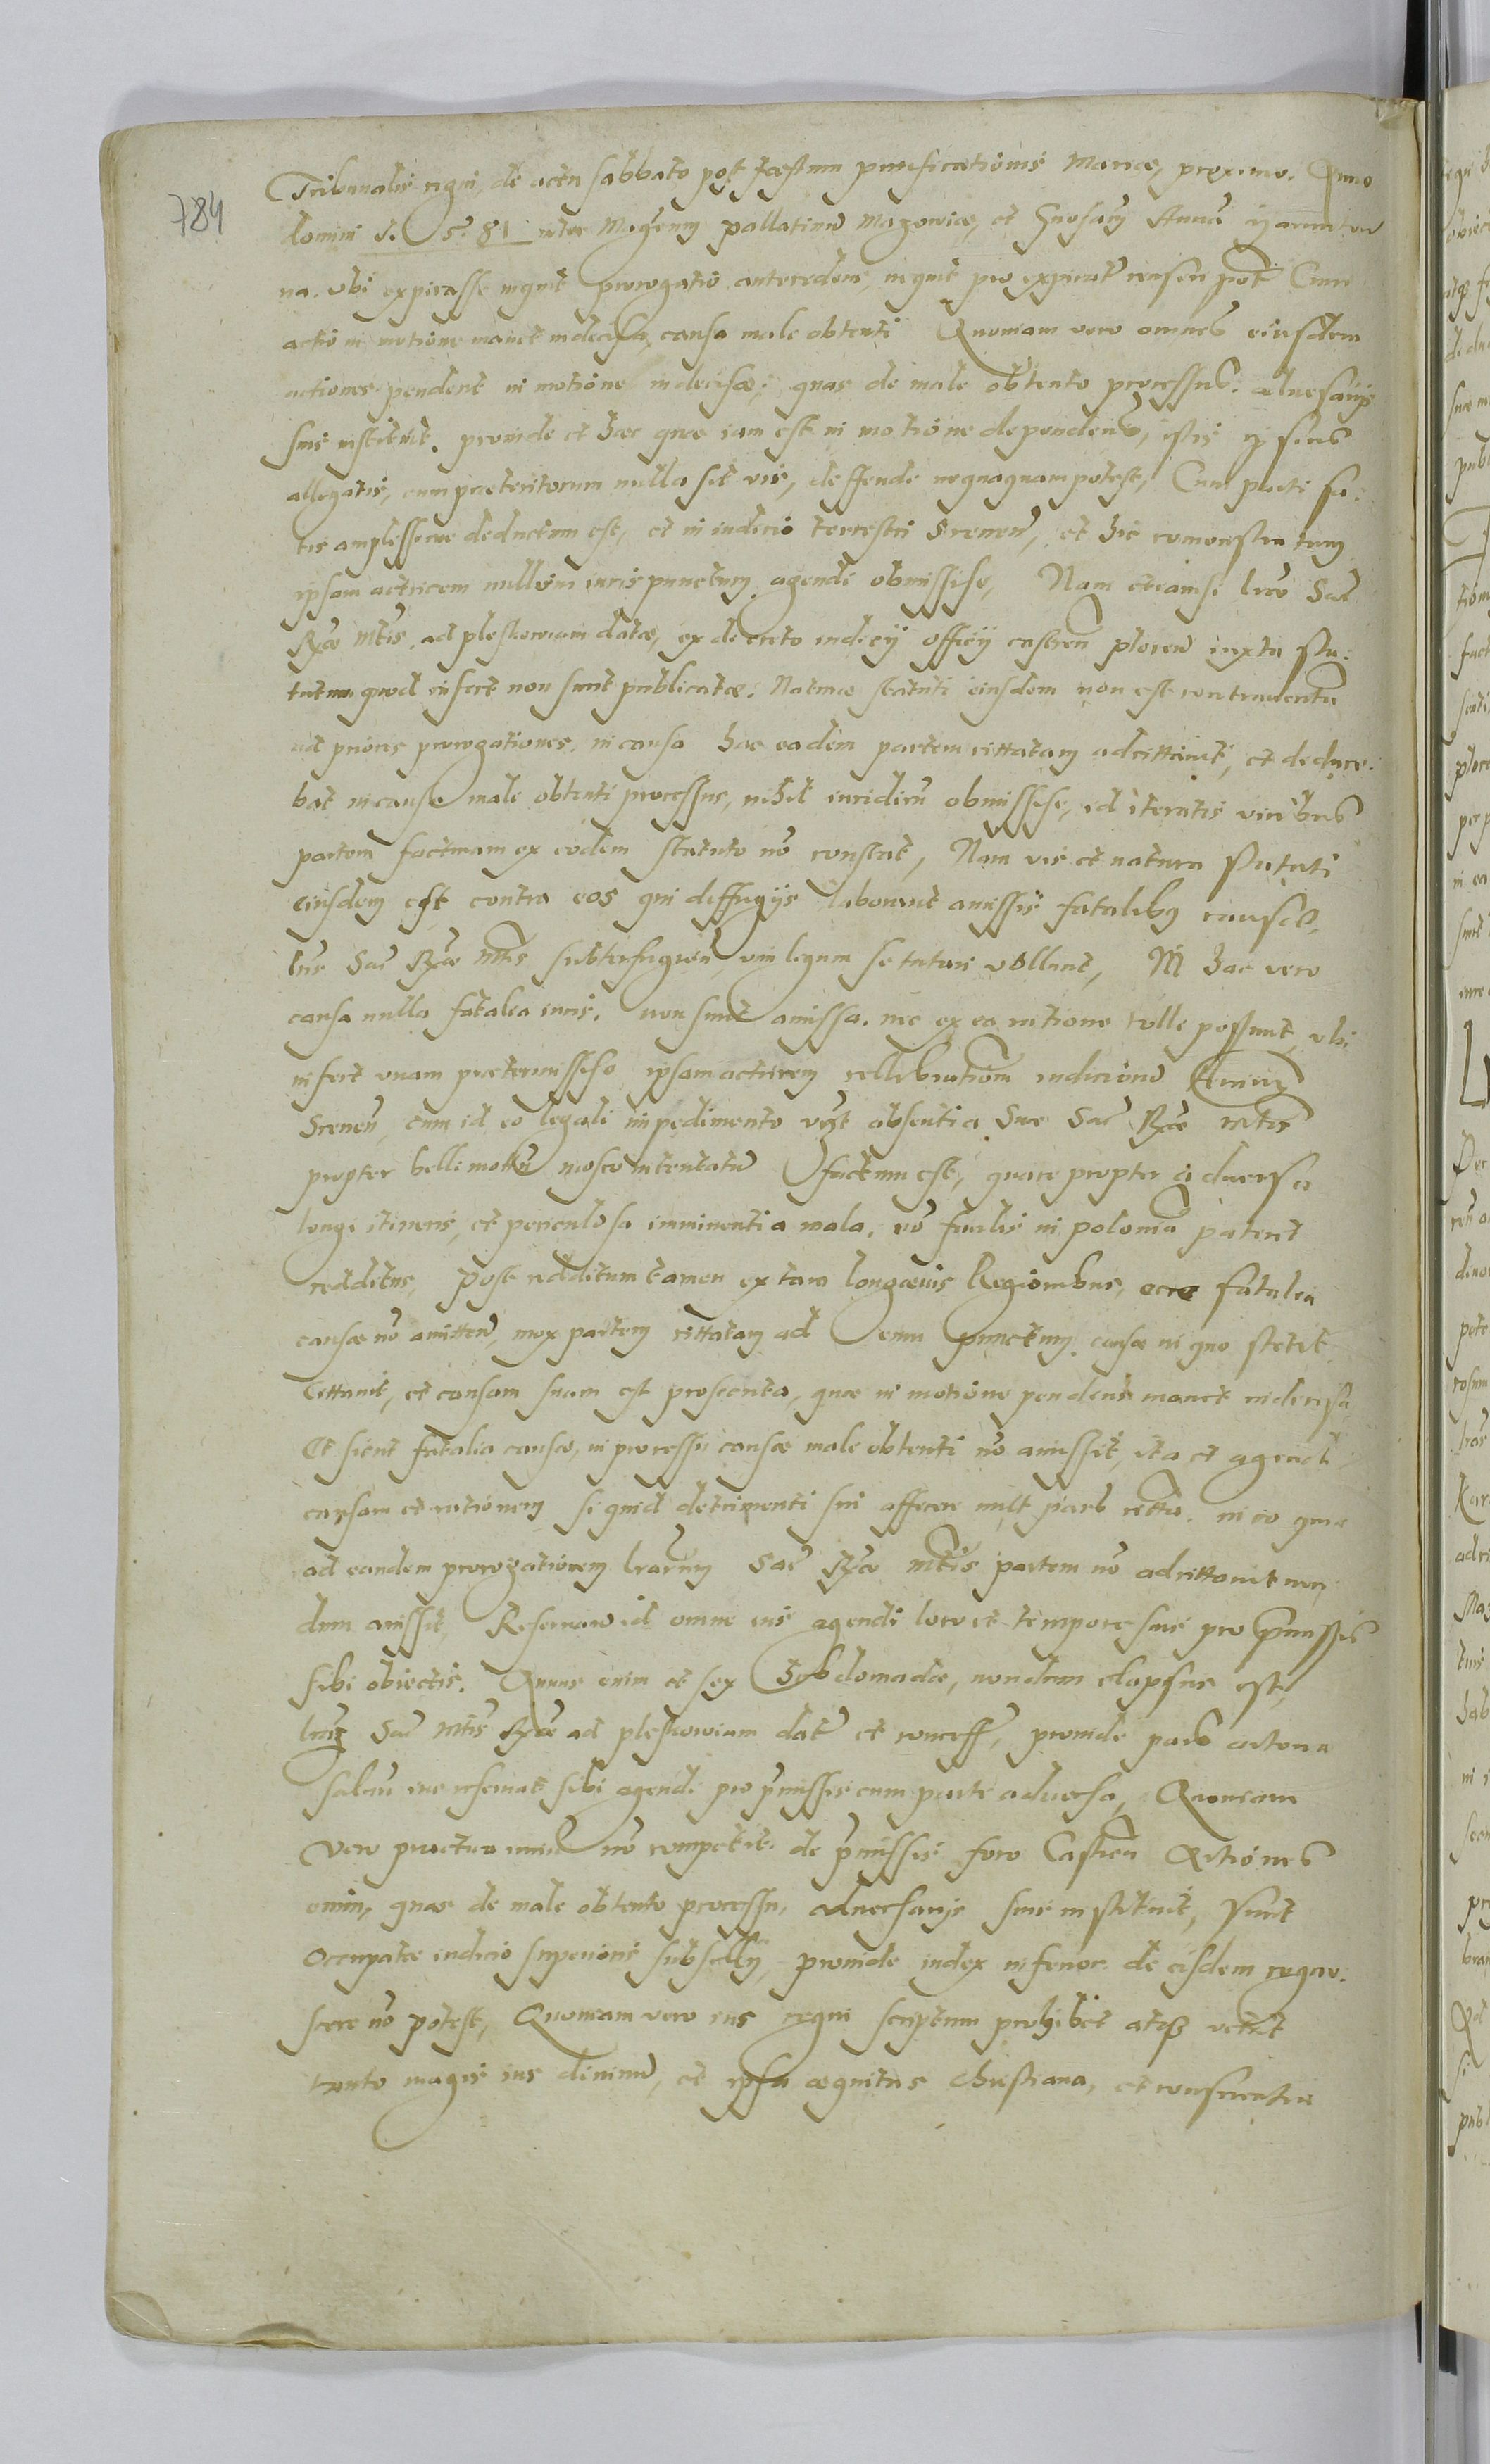 784
Tribunalis regni, de actu sabbato post festum purificationis Mariae, proximo. Anno
domini 1. 5. 81 inter Magcum pallatinum Mazowiae, et
na. vbi expirasse nequit prorogatio antecedens, nequit pro expirat censeri pot Cum
actio in motione manet indecisa, causa male obtenti Quoniam vero omnes eiusdem
actiones pendent in motione indecisae, quas de male obtento processus. aduersarijs
suis instituit. proinde et haec quae iam est in motione dependens, istis
allegatis, cum praeteritorum nulla sit vis, deffende nequaquam potest, Cum parti sa-
tis amplissime deductum est, et in iudicio terrestri Sremen, et hic comonstratum
ipsam actricem nullum iuris punctum agendi obmissise, Nam etiamsi lrae Sac
Rae Mtis. ad pleskowiam datae, ex decreto iudicij officij castren plocen iuxta sta-
tutum quod infert non sunt publicatae. Naturae statuti eiusdem non est contrauentu
ad priores prorogationes. in causa hac eadem partem cittatam adcittauit, et deduce-
bat in causa male obtenti processus, nihil iuridicu obmissise, id iteratis vicibus
partem facturam ex eodem statuto no constat, Nam vis et natura statuti
eiusdem est contra eos qui diffugijs laborant amissis fatalibus
Sac Rae Mtis subterfugien, vim legum se tutari vollunt, In hac vero
causa nulla fatalia iuris. non sunt amissa. nec ex ea ratione tolli possunt, vbi
infert vnam praetermissise ipsam actricem cellebrationem iudiciorum
Sremen, cum id eo legali impedimento vizt absentia Sue Sac Rae Mtis
propter belli mottu mosco intentatu factum est, quare propter aduersa
longi itineris, et periculosa imminentia mala. no facilis in polonia pateret
redditus, Post redditum tamen ex tam longaeuis Regionibus, ecce fatalia
causae no amitten, mox partem cittatam ad eum punctum causae in quo stetit
Cittauit, et causam suam est prosecuta, quae in motione pendens manet indecisa.
Et sicut fatalia causae, in processu causae male obtenti no amissit, ita et agendi
causam et rationem si quid detrimenti sui affecere nult pars citta. in eo quia
ad eandem prorogationem lrarum Sac Rae Mtis partem no adcittauit non-
dum amissit, Reseruando id omne ius agendi loco et tempore suis pro praemissis
sibi obiectis. Annus enim et sex Hebdomadae, nondum elapsus est,
lrarum Sac Mtis Rae ad pleskowiam dat et concess, proinde pars actorea
saluu ius reseruat sibi agendi pro pmissis cum parte aduersa, Quoniam
vero praeterea no competit. de pmissis foro Castren Actiones
enim, quas de male obtento processu, aduersarijs suis instituit, sunt
occupatae iudicio superioris subsellij, proinde iudex inferior de eisdem cogno-
scere no potest, Quoniam vero ius regni scriptum prohibet atq3 vetat
tanto magis ius diuinum, et ipsa aequitas christiana, et conscientia